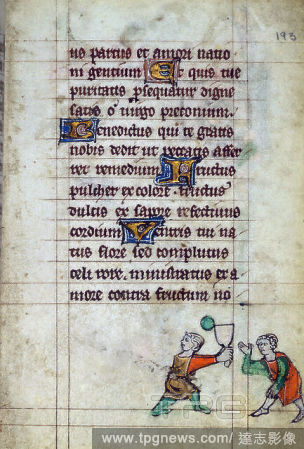 193
us partus et amori natio
ni gentium Et quis tue
puritatis psequatur digne
satis o uirgo preconium.
Benedictus qui te gratis
nobis dedit ut peccatis affer
ret remedium Fructus
pulcher ex colore fructus
dulcis ex sapore refectiuus
cordium Uentris tui na
tus flore sed complutus
celi rore. ministratus et a
more contra fructum no
TPG
www.tpgnews.com/ 達志影像